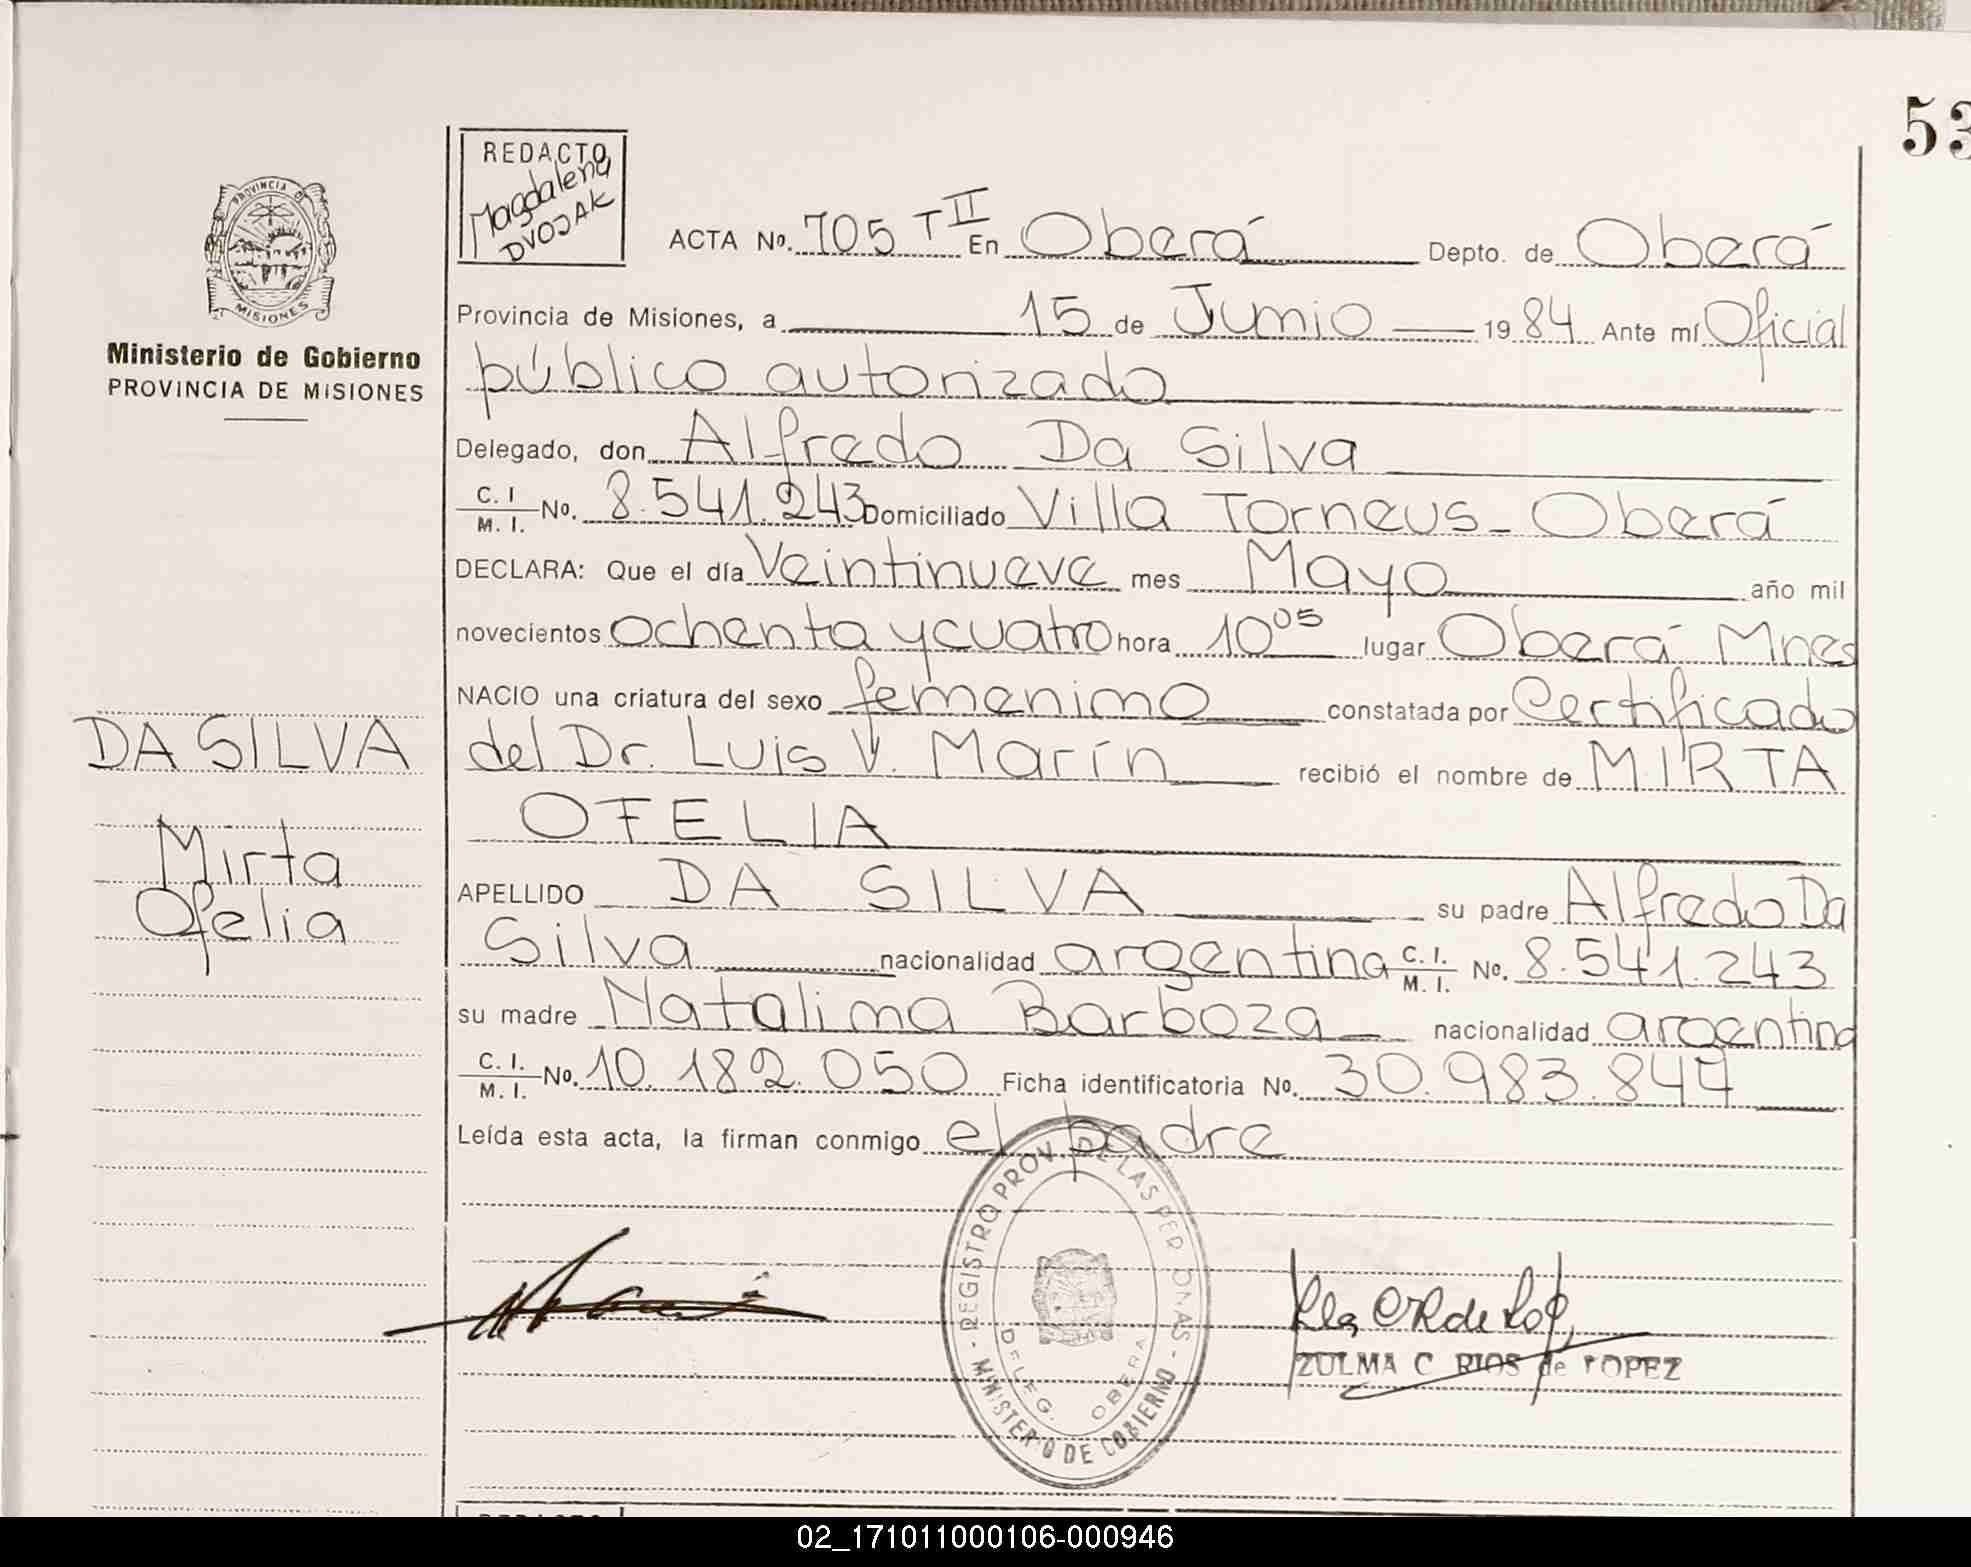 53
REDACTO
Magdalena
DVOJAK
PROVINCIA D
MISIONES
Ministerio de Gobierno
PROVINCIA DE MISIONES
ACTA No. 705 T II En Oberá Depto. de Oberá
Provincia de Misiones, a 15 de Junio 19 84 Ante mí Oficial
público autorizado
Delegado, don Alfredo Da Silva
C. I. M. I. No. 8.541.243 Domiciliado Villa Torneus - Oberá
DECLARA: Que el día Veintinueve mes Mayo año mil
novecientos ochenta y cuatro hora 10 05 lugar Oberá Mnes
NACIO una criatura del sexo femenino constatada por Certificado
DA SILVA
del Dr. Luis V. Marín recibió el nombre de MIRTA
Mirta
OFELIA
Ofelia
APELLIDO DA SILVA su padre Alfredo Da
Silva nacionalidad argentina C. I. M. I. No. 8.541.243
su madre Natalina Barboza nacionalidad argentina
C. I. M. I. No. 10.182.050 Ficha identificatoria No. 30.983.847
Leída esta acta, la firman conmigo el padre
REGISTRO PROV. DE LAS PERSONAS
DELEG. OBERA
MINISTERIO DE GOBIERNO
ZULMA C RIOS de LOPEZ
02_171011000106-000946